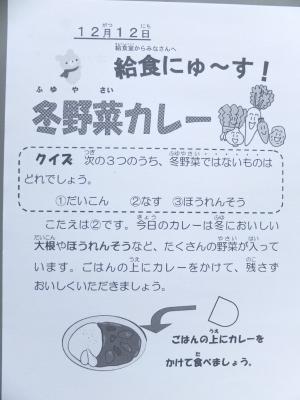 １２月１２日
給食室からみなさんへ
給食にゅ～す！
冬野菜カレー
クイズ 次の３つのうち、冬野菜ではないものは
どれでしょう。
①だいこん ②なす ③ほうれんそう
こたえは②です。今日のカレーは冬においしい
大根やほうれんそうなど、たくさんの野菜が入って
います。ごはんの上にカレーをかけて、残さず
おいしくいただきましょう。
ごはんの上にカレーを
かけて食べましょう。